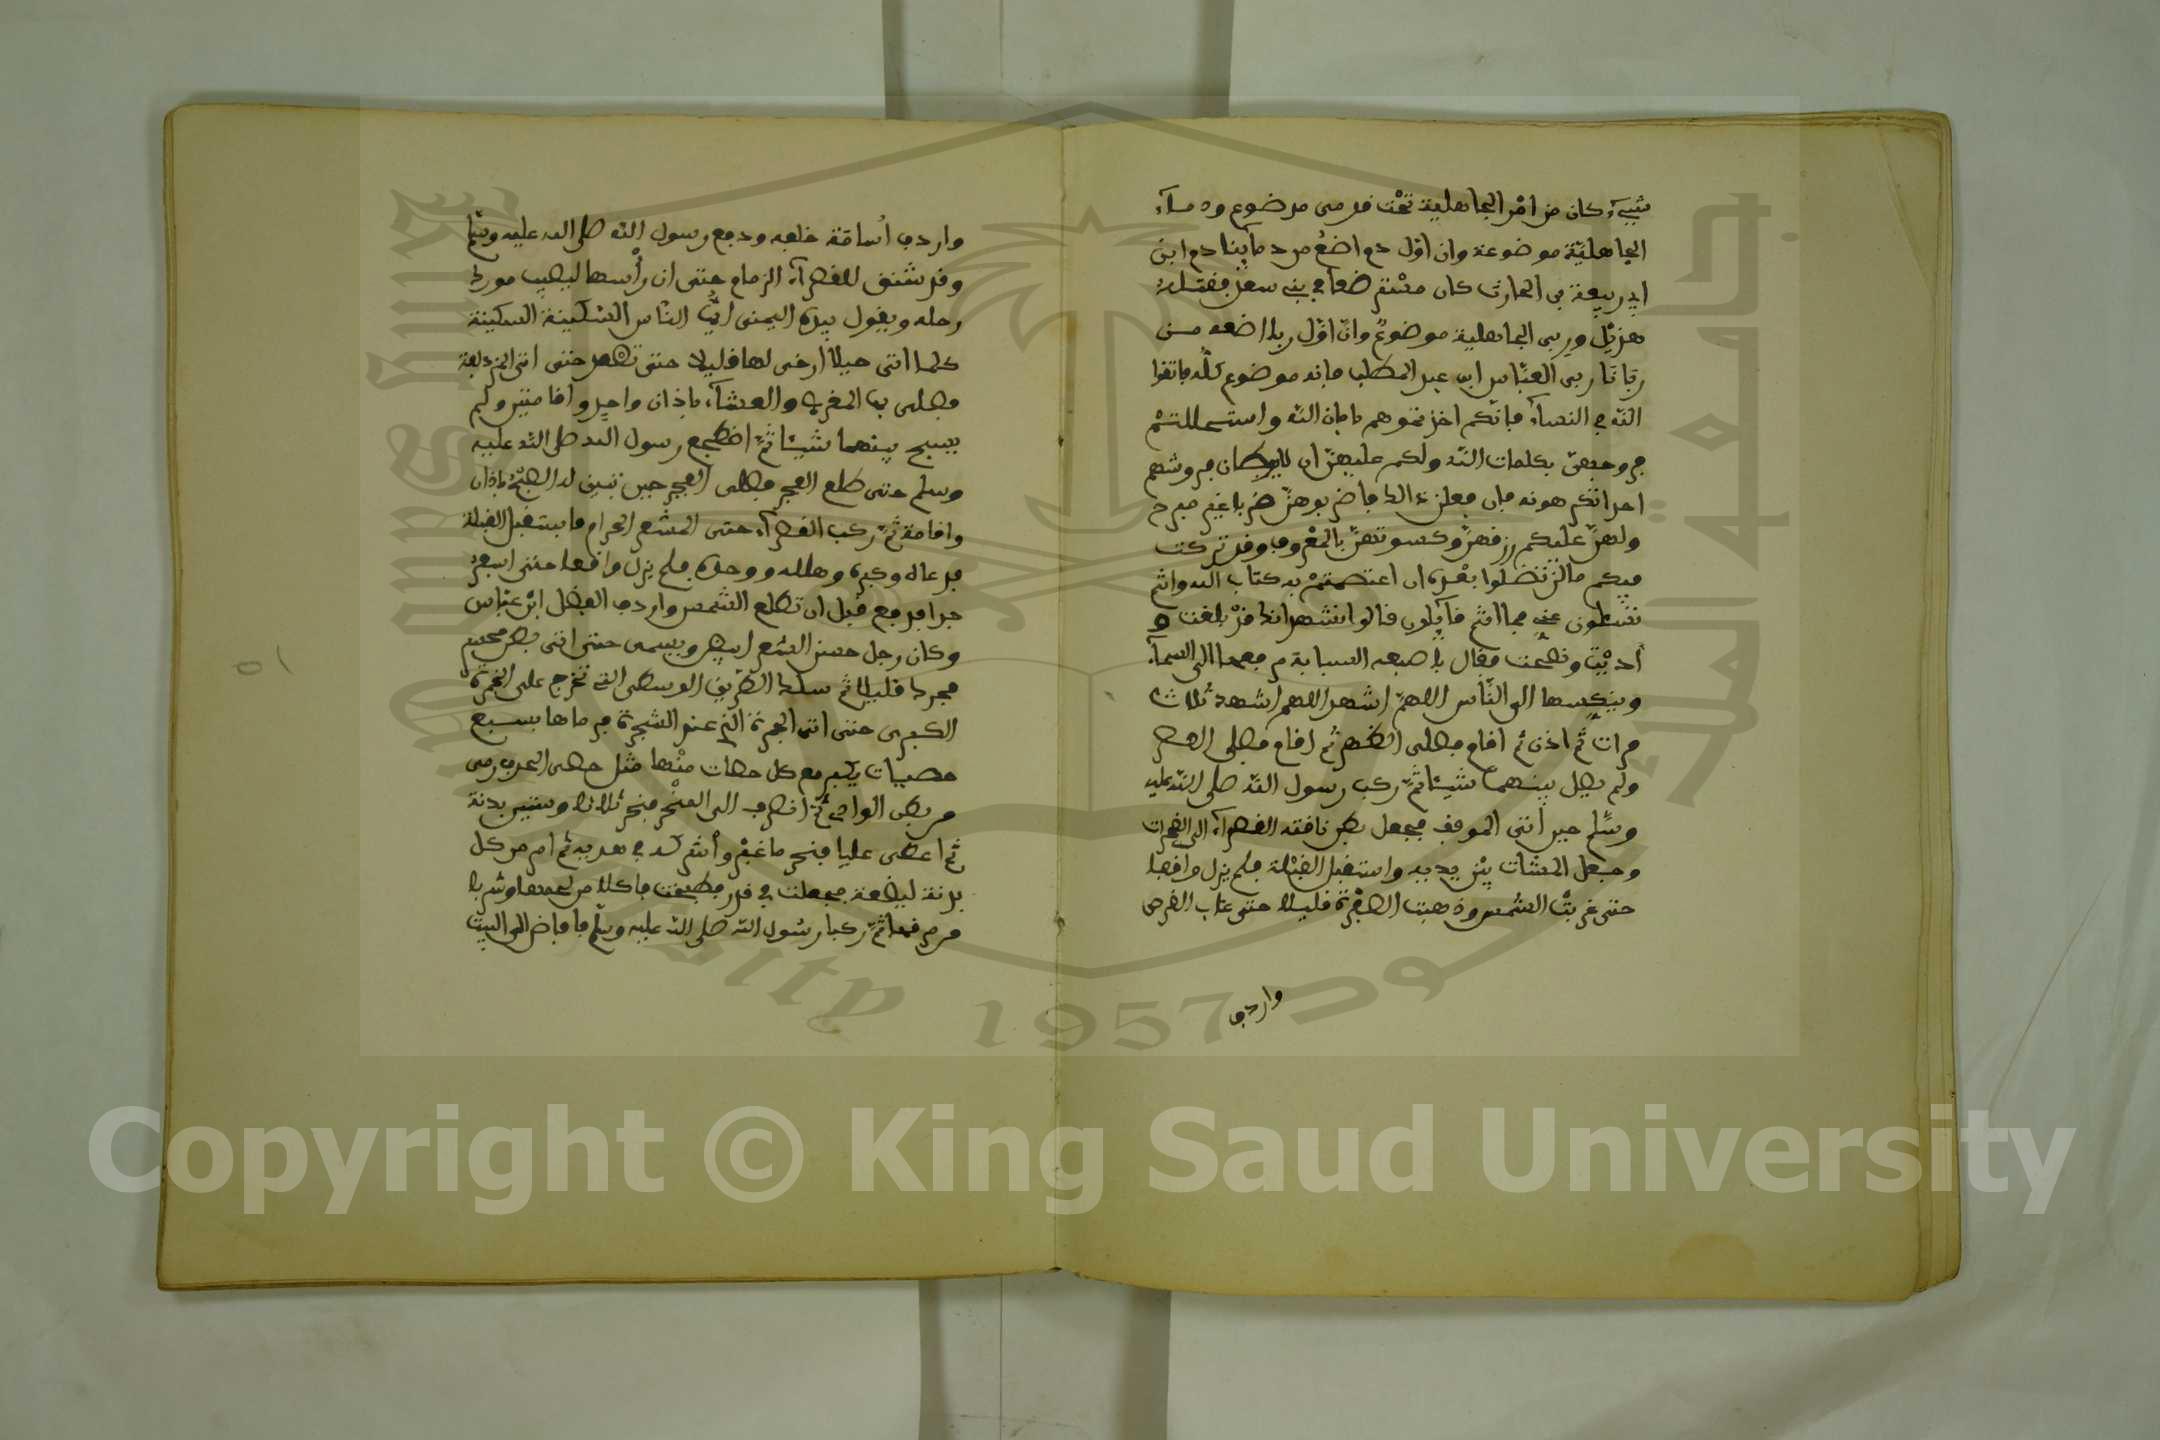 شيء كان من امر الجاهلية تحت قدمي موضوع ودماء
الجاهليّة موضوعة وان اوّل دم اضعُ من دمآئنا دم ابن
ابي ربيعة بن الحارث كان مسترضعا في بني سعد فقتله
هذيل وربى الجاهلية موضوعٌ وانّ اوّل ربا اضعه مــن
ربانا ربى العبّاس ابن عبد المطلب فانه موضوع كلّه فاتقوا
الله في النسآء فانّكم اخذتموهم بامان الله واستحللتمْ
فروجهنّ بكلمات الله ولكم عليهنّ ان لا يوطئن فروشكم
احدا تكرهونه فان فعلن ذالك فاضربوهنّ ضربا غير مبرح
ولهنّ عليكم رزقهنّ وكسوتهنّ بالمعْروف وقد تركت
فيكم ما لن تضلوا بعْده ان اعتصمتمْ به كتاب الله وانتم
تسئلون عني فما انتم قآئلون قالوا نشهد انك قدْ بلغت و
أدّيْت ونصحت فقال باصبعه السبابة يرفعها الى السمآء
وينكسها الى النّاس اللهمّ اشهد اللهم اشهد ثلاث
مرات ثم اذن ثم اقام فصلى الظهر ثم اقام فصلى العصر
ولم يصل بينهما شيئا ثمّ ركب رسول الله صلى الله عليه
وسّلم حين أتى الموقف فجعل بطن ناقته القصوآء الى الصخرات
وجعل المشات بيْن يديه واستقبل القبْلة فلم يزل واقفا
حتى غربتْ الشمس وذهبت الصفْرة قليلا حتى غاب القرص
واردف
واردف أسامة خلفه ودفع رسول الله صلى الله عليه وسّلم
وقد شنق للقصوآء الزمام حتى ان رأْسها ليصيب مورك
رحله ويقول بيده اليمنى ايّها النّاس السّكينة السكينة
كلما اتى حبلا ارخى لها قليلا حتى تصعد حتى اتى المزدلفة
فصلى بها المغرب والعشآء باذان واحدٍ واقامتين ولم
يسبح بينهما شيئا ثمّ اضطجع رسول الله صلى الله عليه
وسلم حتى طلع الفجر فصلى الفجر حين تبين له الصّبْح باذان
واقامة ثمّ ركب القصوآء حتى المشعر الحرام فاستقبل القبلة
فدعاه وكبره وهلله ووحده فلم يزل واقفا حتى اسفر
جدا فدفع قبل ان تطلع الشمس واردف الفضل ابْن عبّاس
وكان رجل حسن الشعر ابيض وسيما حتى اتى بطن محسّر
فحرك قليلا ثمّ سلك الطّريق الوسطى التي تخرج على الجمرة
الكبرى حتى اتى الجمرة التي عند الشجرة فرماها بسبع
حصيات يكبر مع كل حصات منْها مثل حصى الخذف رمى
من بطن الوادي ثمّ انصرف الى المنْحر فنحر ثلاثا وستين بدنة
ثم اعطى عليا فنحر ما غبرْ وأشركه في هديه ثم امر من كل
بدنة لبضعة فجعلت في قدر فطبخت فاكلا من لحمها وشربا
من مرقها ثمّ ركبا رسول الله صلى الله عليه وسّلم فافاض الى البيت
٥١
Copyright © King Saud University
1957